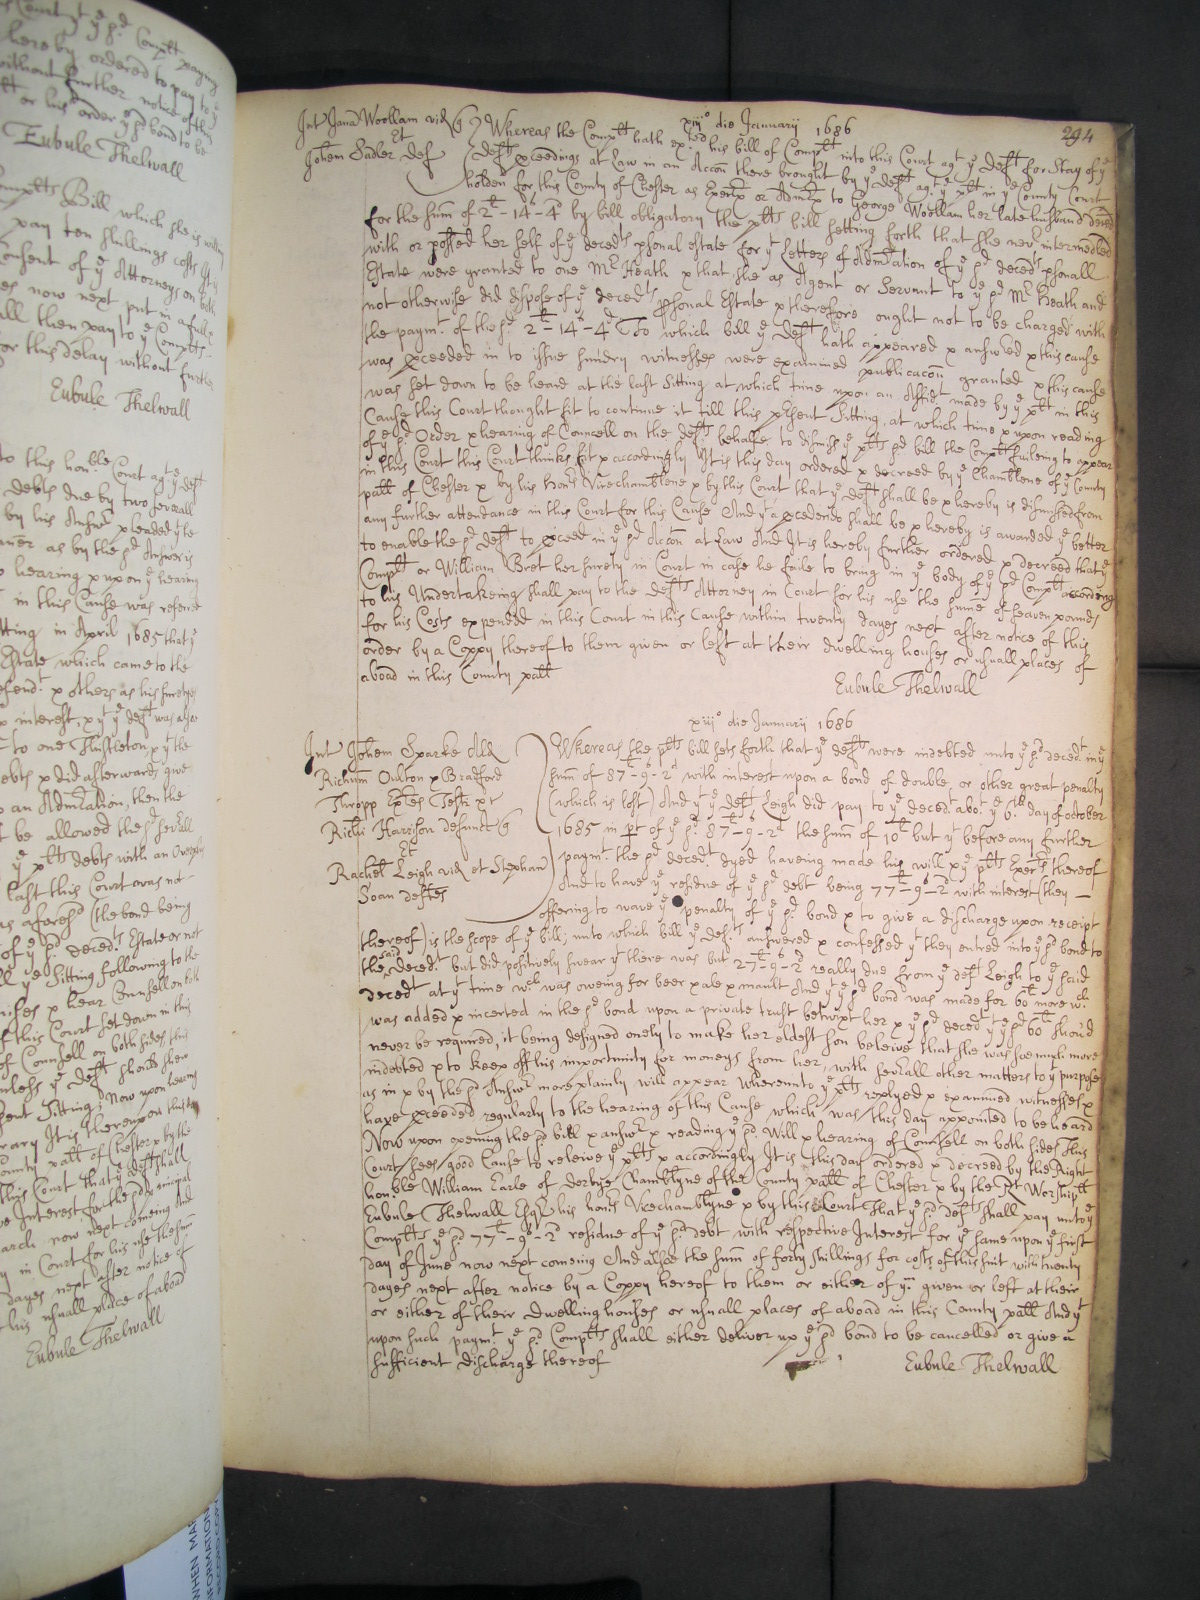 Court yt ye sd Complt paying
hereby ordered to pay to ye
without further notice of this
or his order ye sd bond to be
Eubule Thelwall
Complts Bill which she is willing
pay ten shillings costs
Consent of ye Attorneys on both
now next put in a full
all then pay to ye Complts
for this delay without further
Eubule Thelwall
to this honble Court agt ye deft
debts due by two severall
by his Answr pleaded yt he
as by the sd Answer is
hearing x upon ye hearing
in this Cause was referred
Sitting in April 1685 that ye
Estate which came to the
defendt x others as his suretyes
x interest, x yt ye deft was also
to one Thistleton x yt the
debts x did afterwards give
an Admtration, then the
be allowed the sd severall
ye plts debts with an
last this Court was not
as aforesd (the bond being
of ye sd decedts Estate or not
ye Sitting following to the
x hear Counsell on both
of this Court set down in this
of Counsell on both sides this
unless ye deft should shew
Sitting Now upon hearing
It is thereupon this day
County patt of Chester x by the
this Court that ye deft shall
Interest for the sd principal
March now next comeing And
in Court for his use the sum
dayes next after notice of
his usuall place of aboad
Eubule Thelwall
294
xiij° die Januarij 1686
Int Jana Woollam vid q
Et
Johem Sudler def
Whereas the Complt hath exhted his bill of Complt into this Court agt ye deft for Stay of ye
defts pceedings at Law in an Accon there brought by ye deft agt ye plt in ye County Court
holden for this County of Chester as Exertx or Admtx to George Woollam her late husband deced
for the sum of 2l-14s-4d by bill obligatory the plts bill setting forth that she nevr intermedled
with or possed her self of ye decedts psonal estate for yt Letters of Admtration of ye sd decedts psonall
Estate were granted to one Mr Heath x that she as Agent or Servant to ye sd Mr Heath and
not otherwise did dispose of ye decedts psonal Estate x therefore ought not to be charged with
the paymt of the sd 2l-14s-4d To which bill ye deft hath appeared x answred x this cause
was pceeded in to issue sundry witnesses were examined publicacon granted x this cause
was set down to be heard at the last Sitting at which time upon an Affidt made by ye plt in this
Cause this Court thought fit to continue it till this psent Sitting, at which time x upon reading
of ye sd Order x hearing of Councell on the defts behalfe to dismiss ye plts sd bill the Complt faileing to appear
in this Court this Court thinks fit x accordingly It is this day ordered x decreed by ye Chamblene of ye County
patt of Chester x by his honrs Vicechamblene x by this Court that ye deft shall be x hereby is dismissed from
any further attendance in this Court for this Cause And yt a pcedendo shall be x hereby is awarded ye better
to enable the sd deft to pceed in ye sd Accon at Law And It is hereby further ordered x decreed that ye
Complt or William Bret her surety in Court in case he faile to bring in ye body of ye sd Complt according
to his Undertakeing shall pay to the defts Attorney in Court for his use the sume of seaven pounds
for his Costs expended in this Court in this Cause within twenty dayes next after notice of this
order by a Coppy thereof to them given or left at their dwelling houses or usuall places of
aboad in this County patt
Eubule Thelwall
xiij° die Januarij 1686
Int Johem Sparke All
Richum Oulton x Bradford
Thropp Extes Testi xt
Richi Harrison defunct q
Et
Rachel Leigh vid et Stephan
Soan deftes
Whereas the plts bill sets forth that ye defts were indebted unto ye sd decedt in ye
sum of 87l-9s-2d with interest upon a bond of double, or other great penalty
(which is lost) And yt ye deft Leigh did pay to ye decedt abot ye 6th day of october
1685 in pt of ye sd 87l-9s-2d the sum of 10l but yt before any further
paymt the sd decedt dyed haveing made his will x ye plts Exers thereof
And to have ye residue of ye sd debt being 77l-9s-2d with interest (they
offering to wave ye penalty of ye sd bond x to give a discharge upon receipt
thereof) is the scope of ye bill; unto which bill ye defts answered x confessed yt they entred into ye sd bond to
the said decedt but did positively swear yt there was but 27l-9s-2d really due from ye deft Leigh to ye said
decedt at yt time wch was oweing for beer x ale x mault And yt ye sd bond was made for 60l more wch
was added x incerted in the sd bond upon a private trust betwixt her x ye sd decedt yt ye sd 60l should
never be required, it being designed onely to make her eldest son beleive that she was soe much more
indebted x to keep off his importunity for moneys from her, with severall other matters to yt purpose
as in x by the sd Answr more plainly will appear Whereunto ye plts replyed x examined witnesses x
have pceeded regularly to the hearing of this Cause which was this day appointed to be heard
Now upon opening the sd bill x answr x reading ye sd Will x hearing of Counsell on both sides This
Court sees good Cause to releive ye plts x accordingly It is this day ordered x decreed by the Right
honble William Earle of derbye Chamblyne of the County patt of Chester x by the Rt Worshipll
Eubule Thelwall Esqr his honrs Vicechamblyne x by this Court That ye sd defts shall pay unto ye
Complts ye sd 77l-9s-2d residue of ye sd debt with respective Interest for ye same upon ye first
day of June now next comeing And alsoe the sum of forty shillings for costs of this suit with twenty
dayes next after notice by a Coppy hereof to them or either of ym given or left at their
or either of their dwelling houses or usuall places of aboad in this County patt And yt
upon such paymt ye sd Complts shall either deliver up ye sd bond to be cancelled or give a
sufficient discharge thereof
Eubule Thelwall
WHEN MA
INFORMATION
RECORD COPY